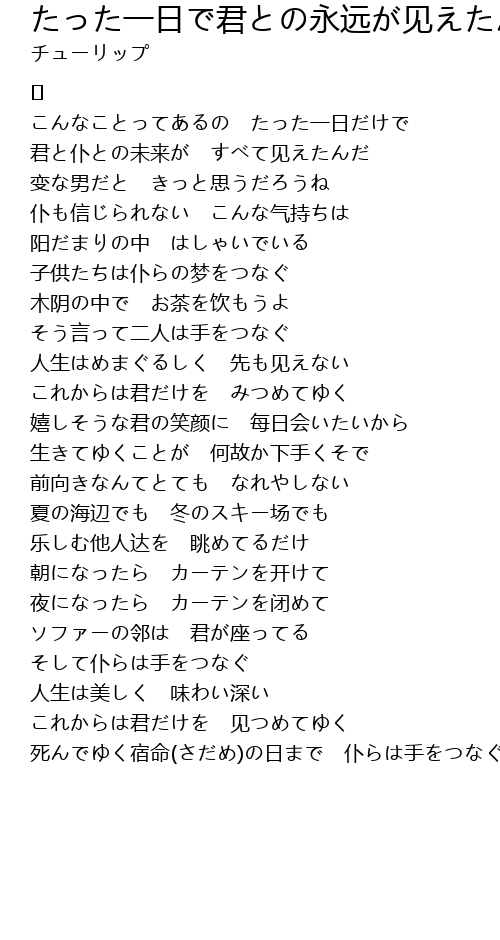 たった一日で君との永远が见えたん
チューリップ
こんなことってあるの　たった一日だけで
君と仆との未来が　すべて见えたんだ
变な男だと　きっと思うだろうね
仆も信じられない　こんな气持ちは
阳だまりの中　はしゃいでいる
子供たちは仆らの梦をつなぐ
木阴の中で　お茶を饮もうよ
そう言って二人は手をつなぐ
人生はめまぐるしく　先も见えない
これからは君だけを　みつめてゆく
嬉しそうな君の笑颜に　每日会いたいから
生きてゆくことが　何故か下手くそで
前向きなんてとても　なれやしない
夏の海辺でも　冬のスキー场でも
乐しむ他人达を　眺めてるだけ
朝になったら　カーテンを开けて
夜になったら　カーテンを闭めて
ソファーの邻は　君が座ってる
そして仆らは手をつなぐ
人生は美しく　味わい深い
これからは君だけを　见つめてゆく
死んでゆく宿命(さだめ)の日まで　仆らは手をつなぐ